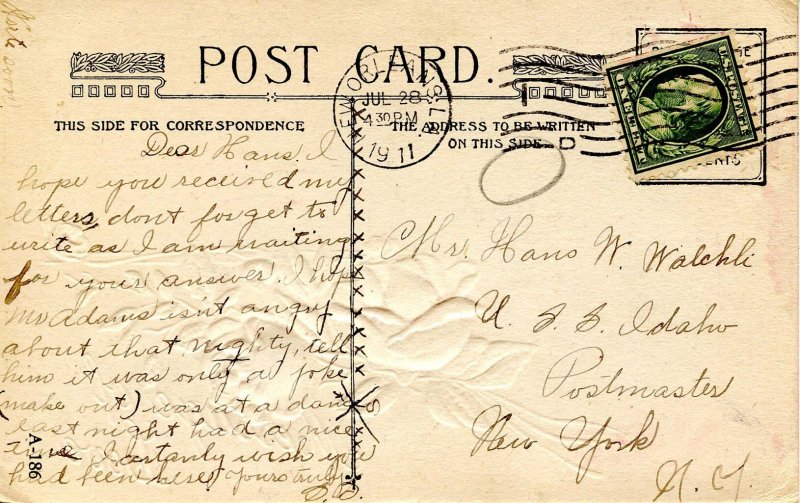 POST CARD.
NEW ORLEANS, LA.
JUL 28
4 30 PM
1911
THIS SIDE FOR CORRESPONDENCE
THE ADDRESS TO BE WRITTEN
ON THIS SIDE
Dear Hans. I
hope you received my
letters, dont forget to
write as I am waiting
for your answer. I hope
Mr Adams isn't angry
about that nighty, tell
him it was only a joke
(make out) was at a dance
last night had a nice
time I certanly wish you
had been here. Yours truly
Mr. Hans W. Walchli
U. S. S. Idaho
Postmaster
New York
N. Y.
A-186